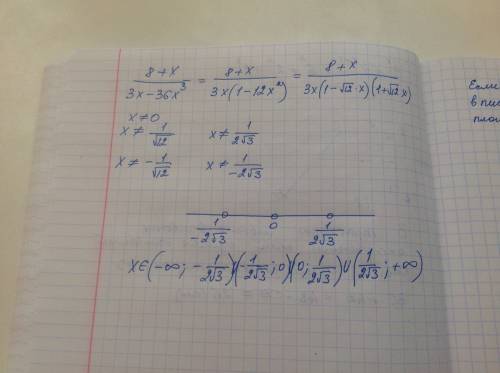 (8+x)/(3x-36x³) = (8+x)/(3x(1-12x²)) = (8+x)/(3x(1-√12·x)(1+√12x))
x≠0
x≠1/√12 x≠1/(2√3)
x≠-1/√12 x≠1/(-2√3)
1/(-2√3) 0 1/(2√3)
X∈(-∞; -1/(2√3))(-1/(2√3); 0)(0; 1/(2√3))∪(1/(2√3); +∞)
Если
в пис
пло